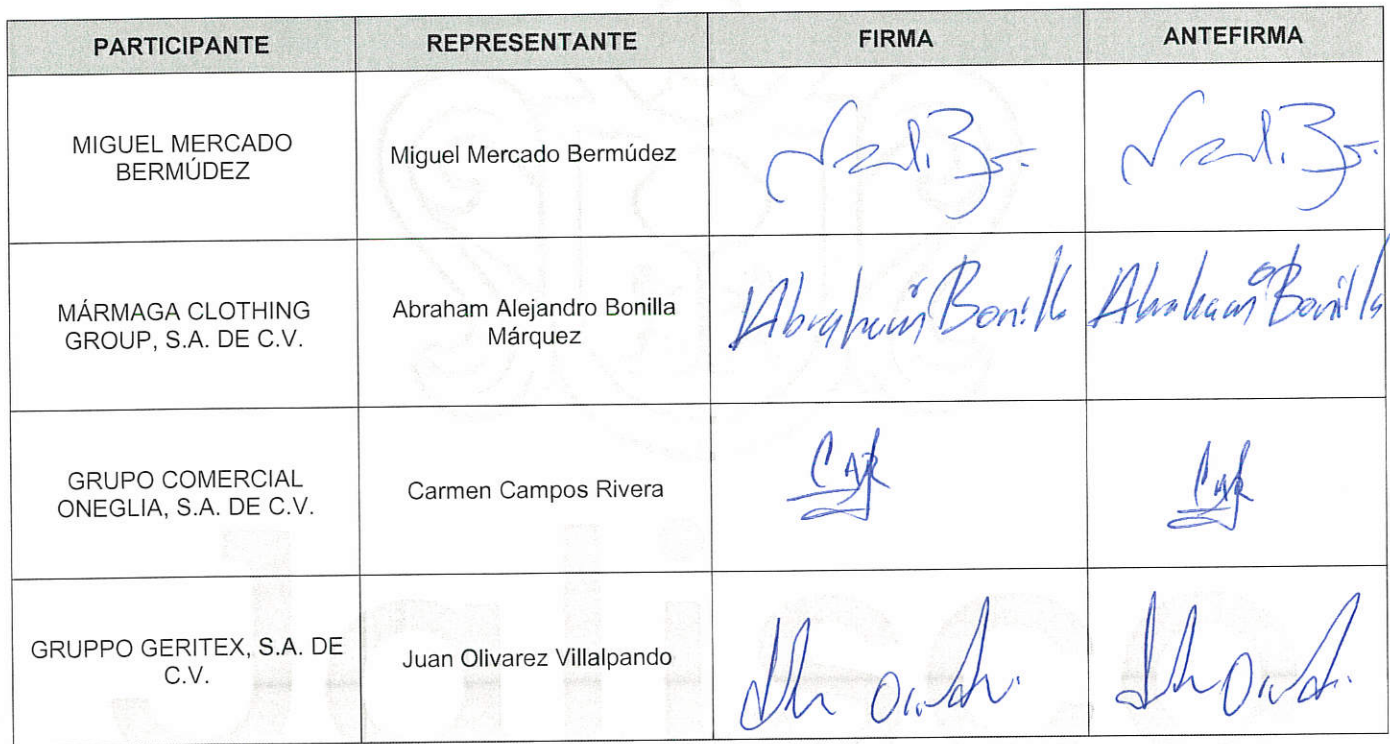 PARTICIPANTE REPRESENTANTE FIRMA ANTEFIRMA
MIGUEL MERCADO
BERMÚDEZ
Miguel Mercado Bermúdez
MÁRMAGA CLOTHING
GROUP, S.A. DE C.V.
Abraham Alejandro Bonilla
Márquez
Abraham Bonilla
Abraham Bonilla
GRUPO COMERCIAL
ONEGLIA, S.A. DE C.V.
Carmen Campos Rivera
GRUPPO GERITEX, S.A. DE
C.V.
Juan Olivarez Villalpando
Jalisco